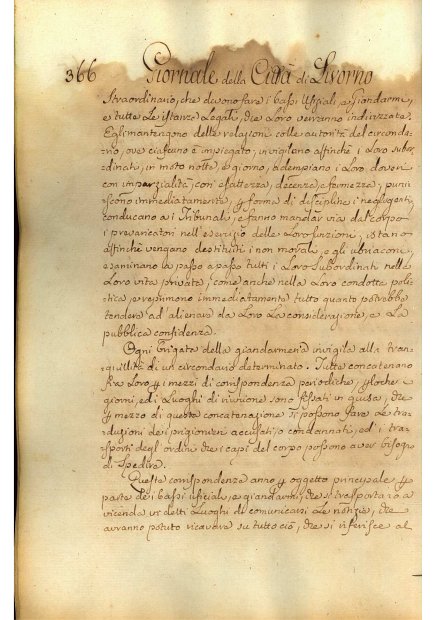 366 Giornale della Città di Livorno
Straordinario, che devono fare i bassi Ufiziali, e Giandarmi,
e tutte Le istanze Legali, che Loro verranno indirizzate.
Egli mantengono delle relazioni colle autorità del circonda-
rio, ove ciascuno è impiegato, invigilano affinchè i Loro subor-
dinati, in moto notte, e giorno, adempiano i Loro doveri
con imparzialità, con esattezza, decenza, e fermezza, puni-
scono immediatamente, p forma di disciplina i negligenti,
conducano ai Tribunali, e fanno mandar via dal corpo
i prevaricatori nell'esercizio delle Loro funzioni, istano
affinchè vengano destituiti i non morali, e gli ubriaconi,
esaminano la passo a passo tutti i Loro Subordinati nella
Loro vita privata, come anche nella Loro condotta poli-
tica, e reprimono immediatamente tutto quanto potrebbe
tendere ad alienare da Loro La considerazione, e La
pubblica confidenza.
Ogni brigata della giandarmeria invigila alla tran-
quillità di un circondario determinato. Tutte concatenano
fra Loro p i mezzi di corrispondenza periodiche, p che i
giorni, ed i Luoghi di riunione sono fissati in guisa, che
p mezzo di questa concatenazione si possono fare Le tra-
duzioni dei prigionieri accusati, o condannati, ed i tra-
sporti degl'ordini che i capi del corpo possono aver bisogno
di Spedire.
Questa corrispondenza anno p oggetto principale p
parte dei bassi ufiziali, e giandarmi, che si trasportano a
vicenda ne detti Luoghi di comunicarsi Le notizie, che
avranno potuto ricavare su tutto ciò, che si riferisce al